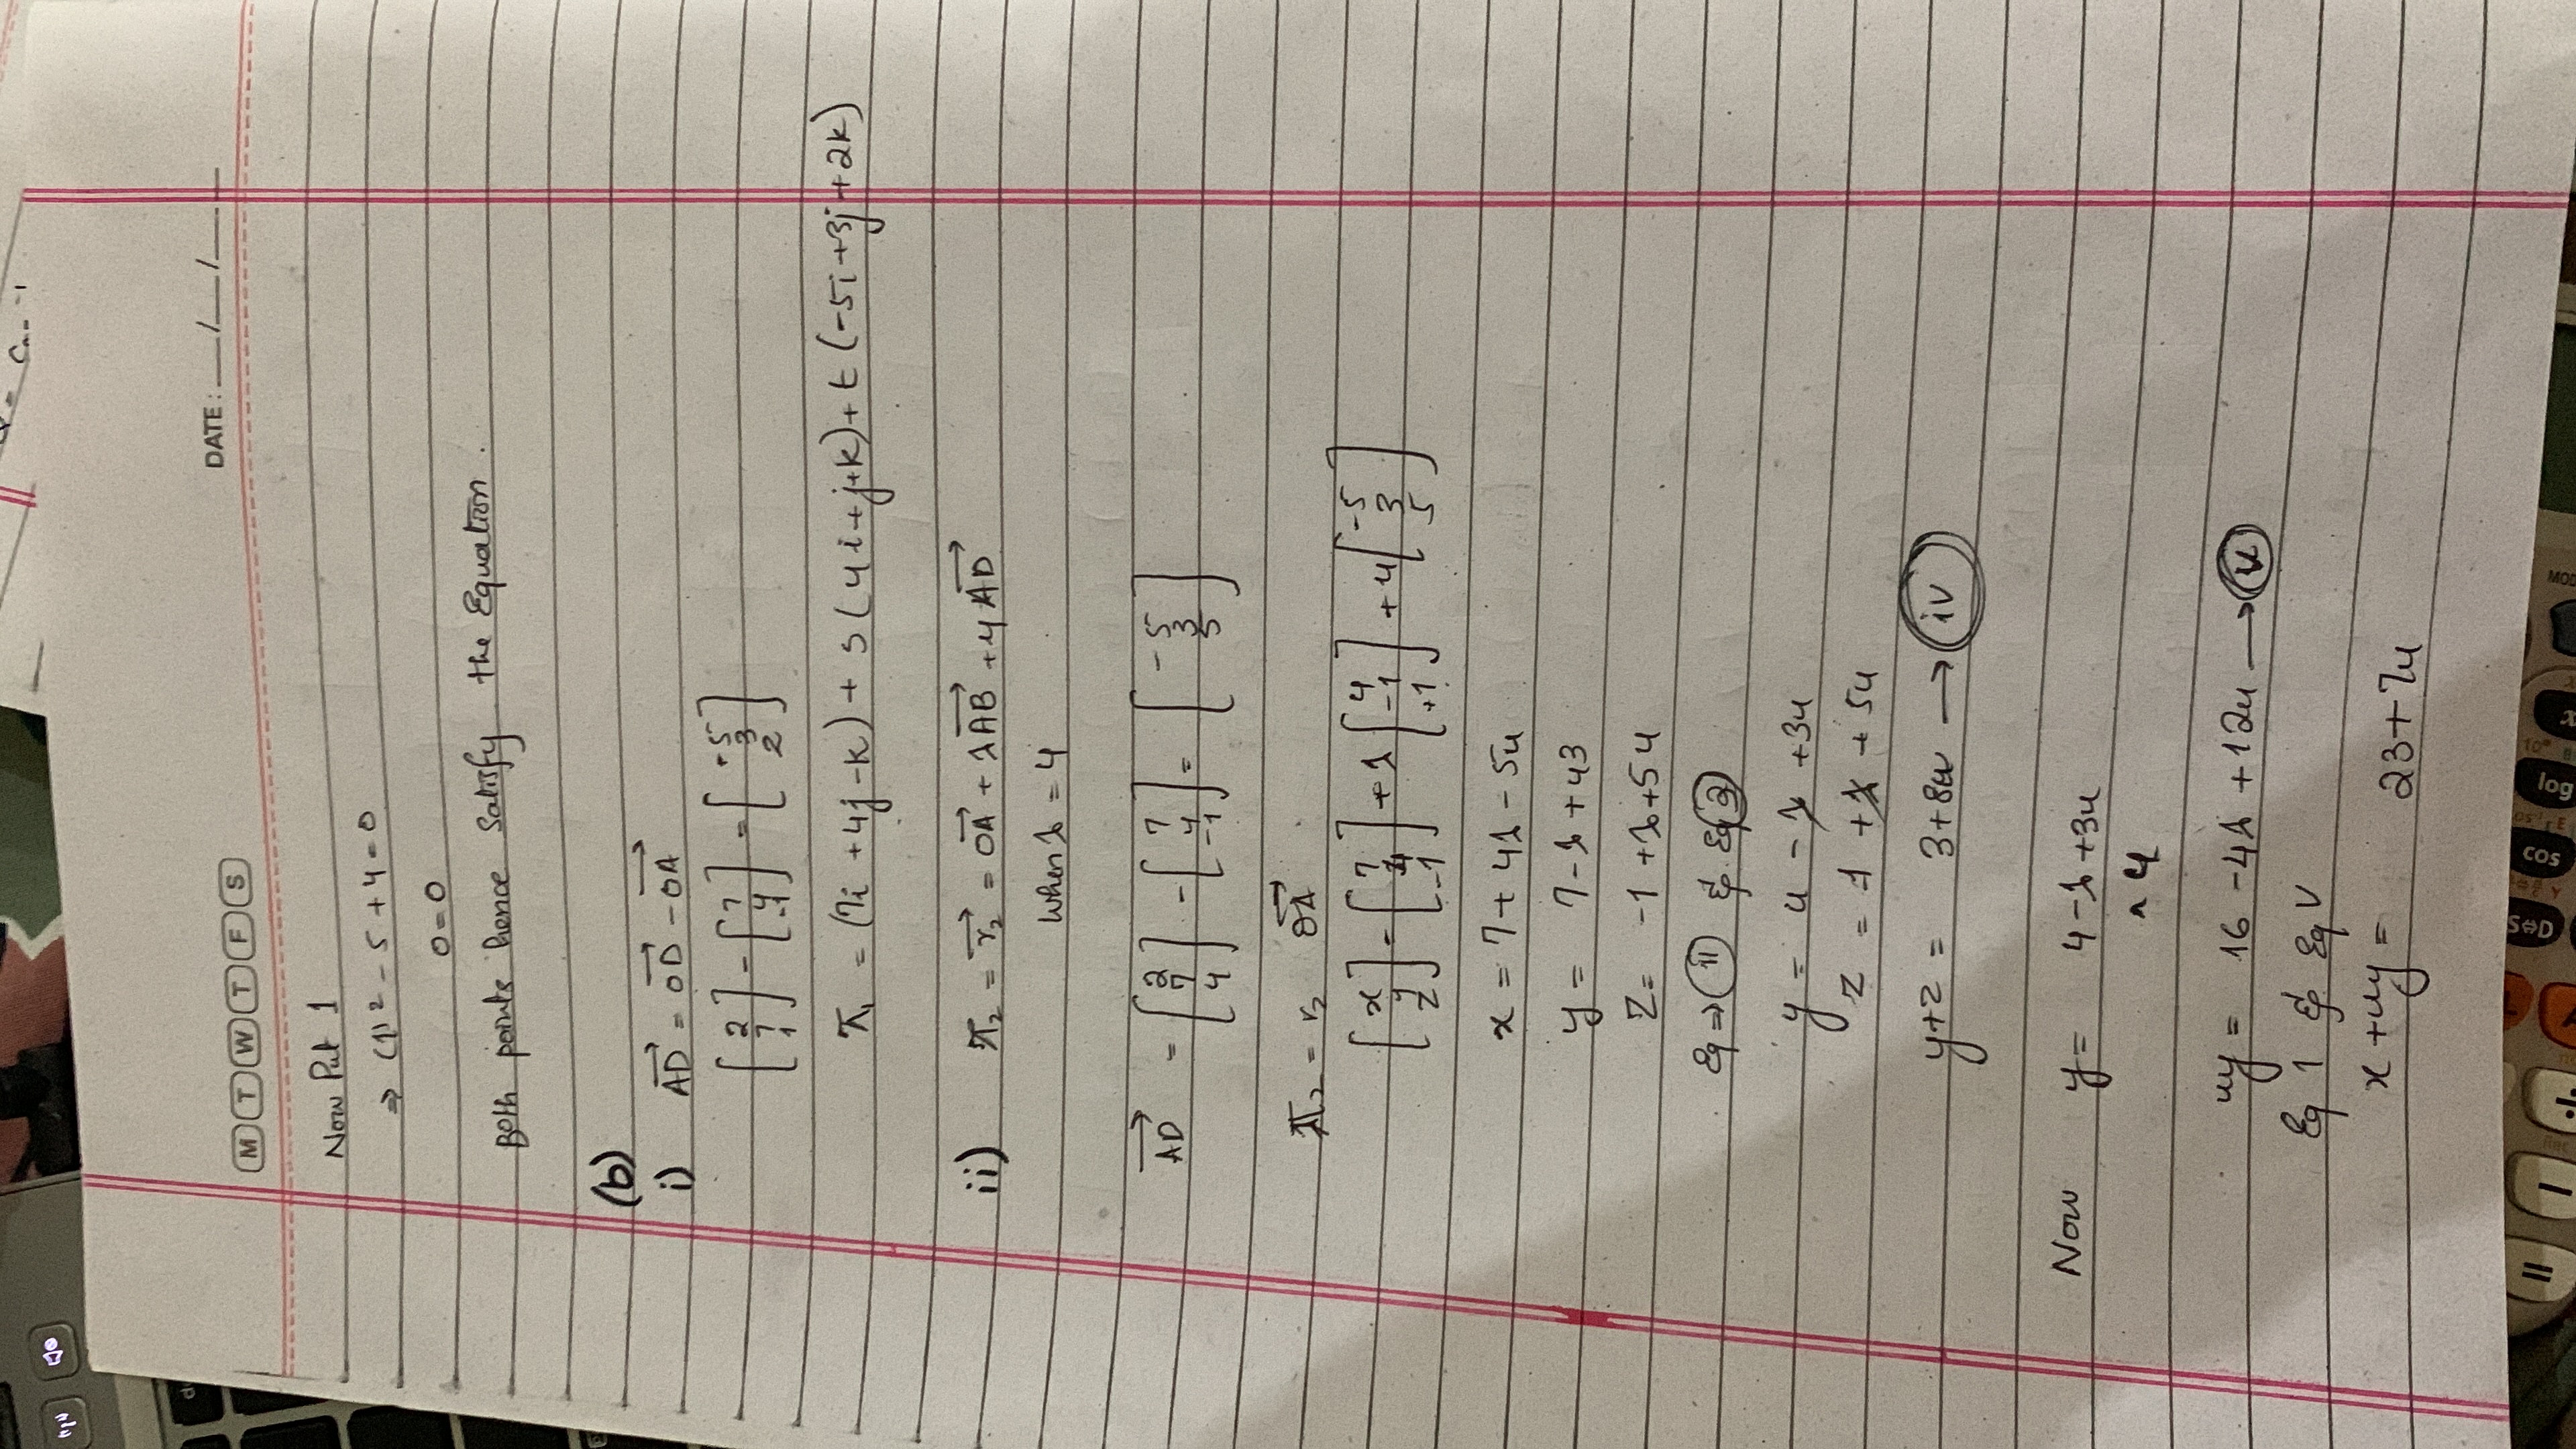 = Cn -1
M T W T F S
DATE: __/__/__
Now Put 1
⇒ (1)² - 5 + 4 = 0
0 = 0
Both points hence Satisfy the Equation.
(b)
i) AD→ = OD→ - OA→
[2 7 1] - [7 4 -1] = [-5 3 2]
π₁ = (7i + 4j - k) + s(4i + j + k) + t(-5i + 3j + 2k)
ii) π₂ = r₂→ = OA→ + λAB→ + 4AD→
When λ = 4
AD→ = [2 7 4] - [7 4 -1] = [-5 3 5]
π₂ = r₂ OA→
[x y z] = [7 4 -1] + λ[4 -1 +1] + u[-5 3 5]
x = 7 + 4λ - 5u
y = 7 - λ + 43
z = -1 + λ + 5u
Eq ⇒ (ii) & Eq (2)
y = 4 - λ + 3u
z = -1 + λ + 5u
y+z = 3+8u → (iv)
Now y = 4 - λ + 3u
× 4
4y = 16 - 4λ + 12u → (v)
Eq 1 & Eq V
x + 4y = 23 + 7u
S⇔D
cos
log